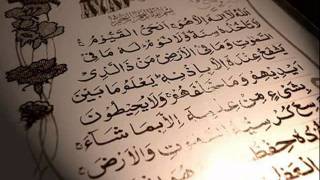 اللَّهُ لَا إِلَهَ إِلَّا هُوَ الْحَيُّ الْقَيُّومُ
لَا تَأْخُذُهُ سِنَةٌ وَلَا نَوْمٌ لَهُ مَا فِي
السَّمَوَاتِ وَمَا فِي الْأَرْضِ مَنْ ذَا الَّذِي
يَشْفَعُ عِنْدَهُ إِلَّا بِإِذْنِهِ يَعْلَمُ مَا بَيْنَ
أَيْدِيهِمْ وَمَا خَلْفَهُمْ وَلَا يُحِيطُونَ
بِشَيْءٍ مِنْ عِلْمِهِ إِلَّا بِمَا شَاءَ
سِعَ كُرْسِيُّهُ السَّمَوَاتِ وَالْأَرْضَ